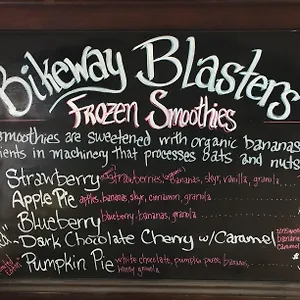 Bikeway Blasters
Frozen Smoothies
smoothies are sweetened with organic bananas
ients in machinery that processes oats and nuts
Strawberry strawberries, bananas, skyr, vanilla, granola
Apple Pie apples, bananas, skyr, cinnamon, granola
Blueberry blueberry, bananas, granola
Dark Chocolate Cherry w/Caramel
Pumpkin Pie white chocolate, pumpkin puree, bananas,
honey, granola